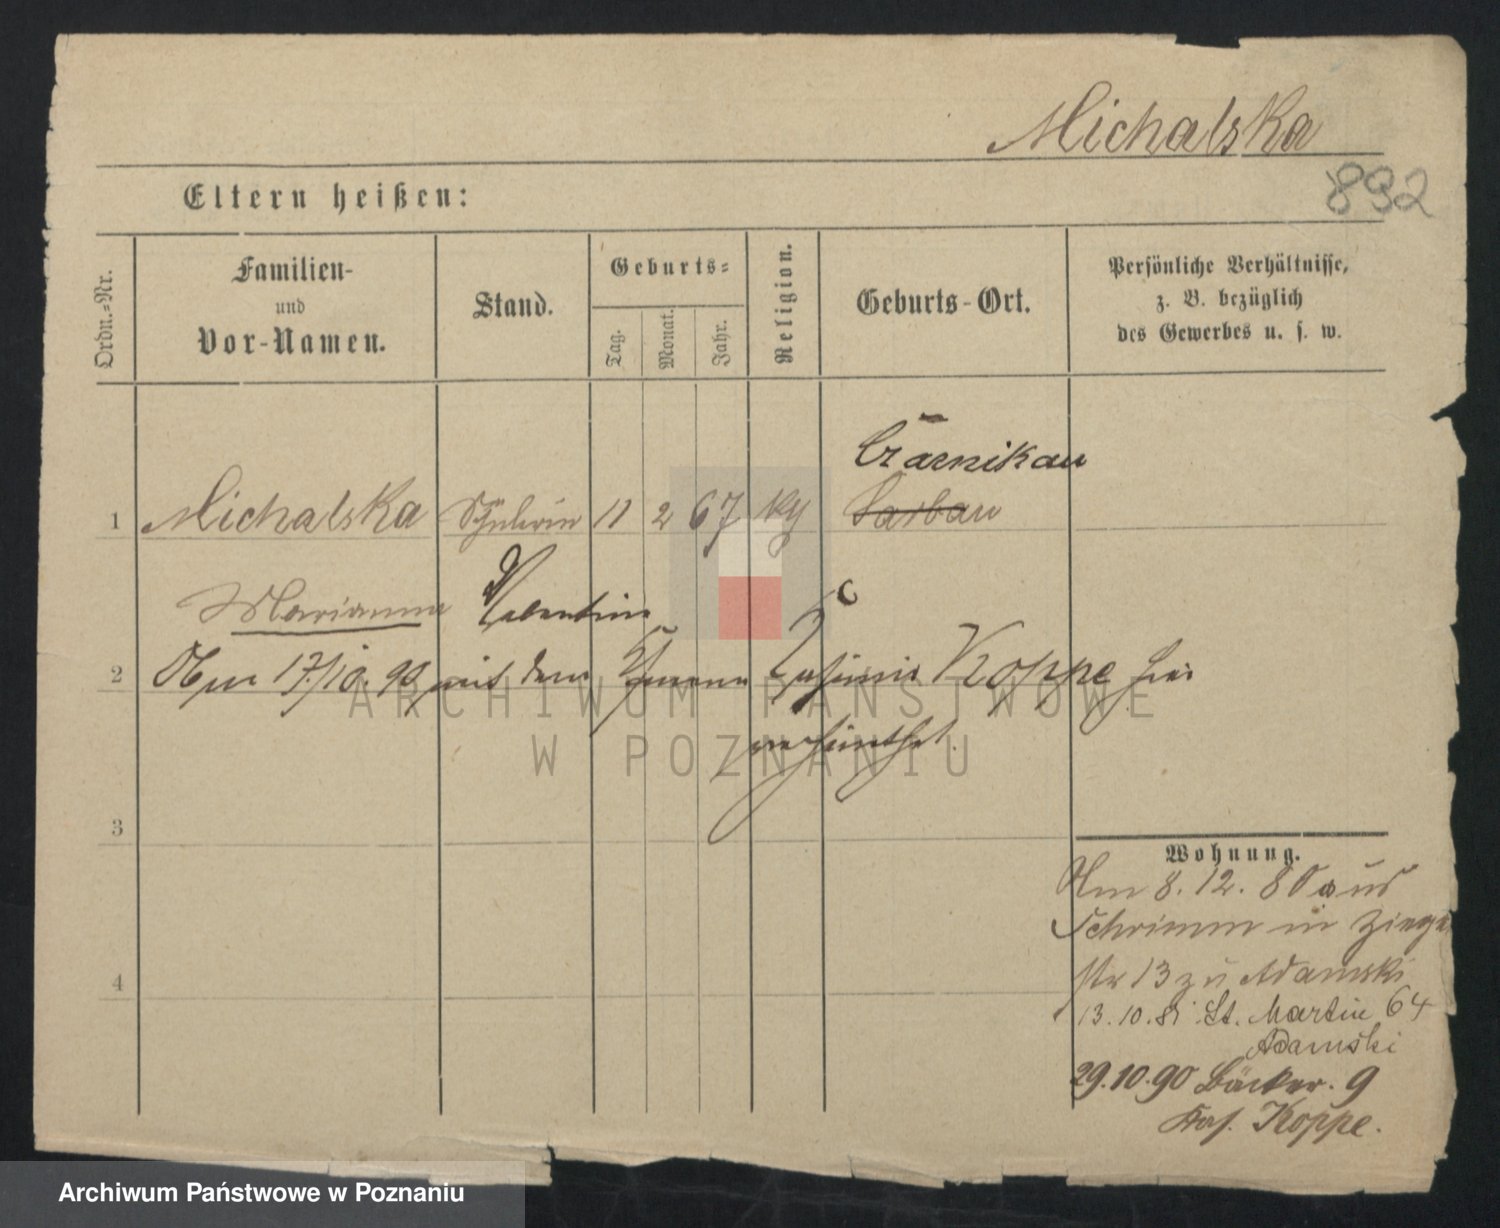 Michalska
892
Eltern heißen:
Ordn.=Nr.
Familien-
und
Vor-Namen.
Stand.
Geburts=
Tag.
Monat.
Jahr.
Religion.
Geburts-Ort.
Persönliche Verhältnisse,
z. B. bezüglich
des Gewerbes u. s. w.
Czarnikau
1 Michalska Schülerin 11 2 67 kg Sarbau
Marianna Valentin
2 Am 17/10. 90 mit dem Casimir Koppe hier
ARCHIWUM PAŃSTWOWE
W POZNANIU
3
Wohnung.
Am 8. 12. 80 aus
Schrimm in Ziege
str 13 zu Adamski
4
13. 10. 81 St. Martin 64
Adamski
29.10.90 Bäcker. 9
Koppe.
Archiwum Państwowe w Poznaniu